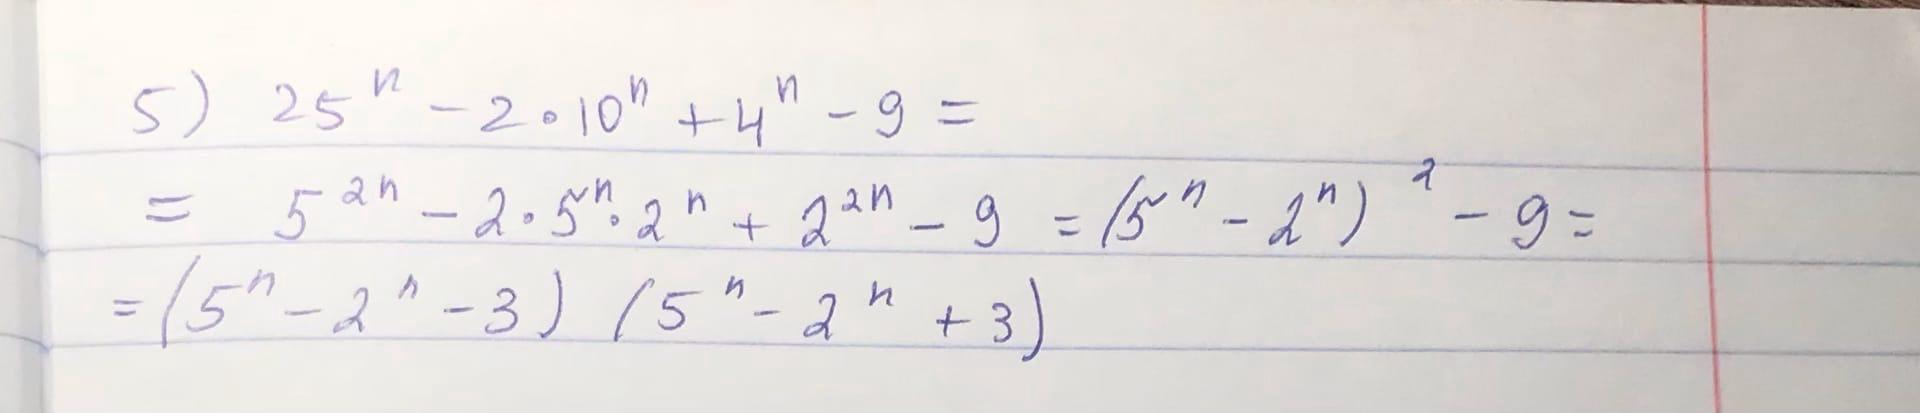 5) 25ⁿ - 2 · 10ⁿ + 4ⁿ - 9 =
= 5²ⁿ - 2 · 5ⁿ · 2ⁿ + 2²ⁿ - 9 = (5ⁿ - 2ⁿ)² - 9 =
= (5ⁿ - 2ⁿ - 3) (5ⁿ - 2ⁿ + 3)